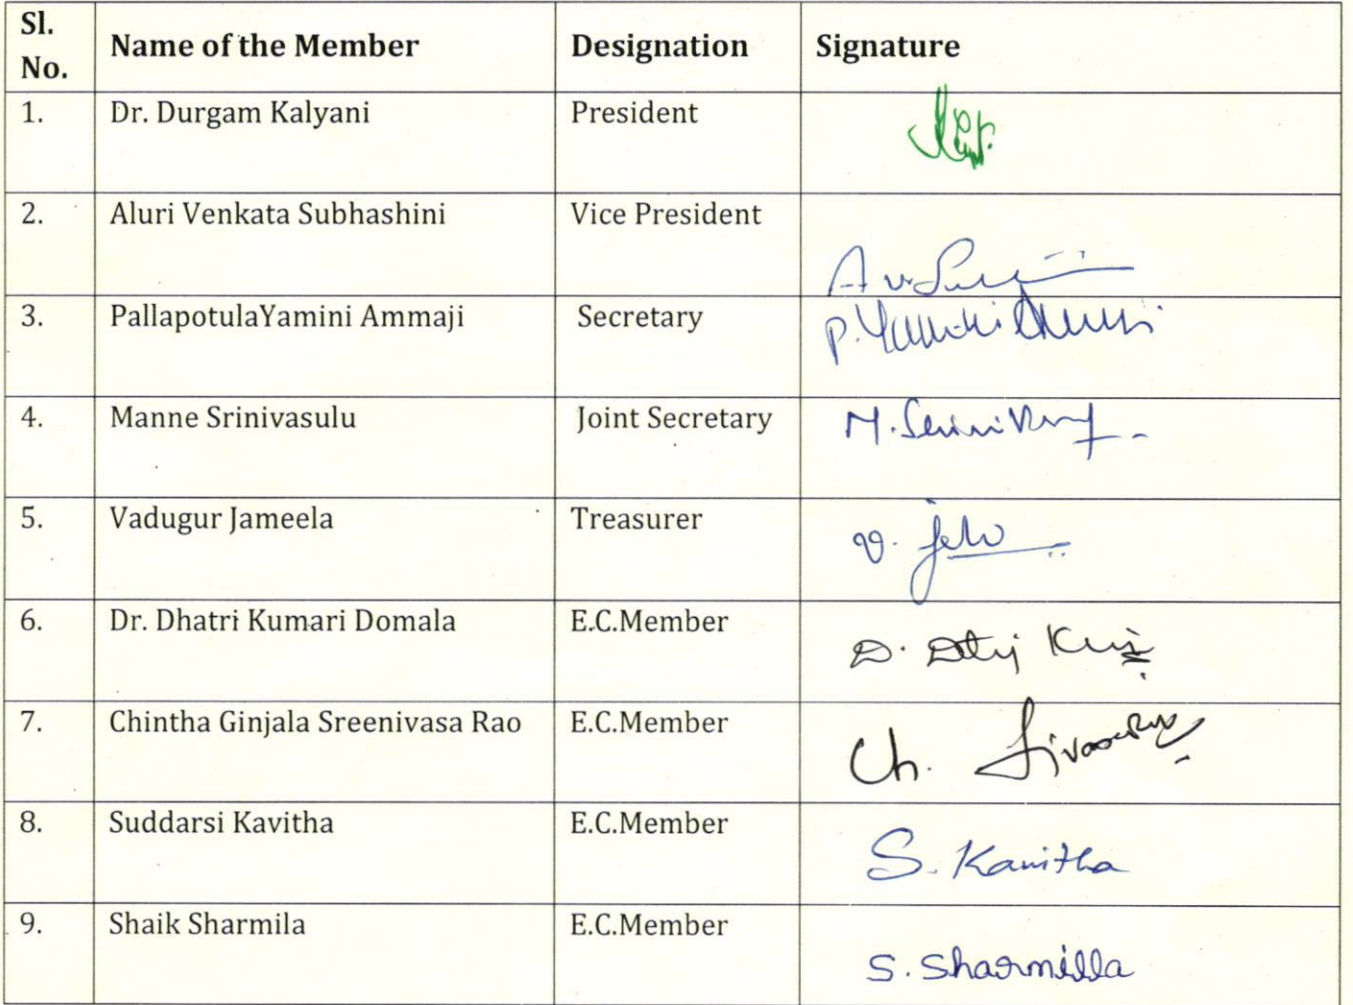 Sl. No. Name of the Member Designation Signature
1. Dr. Durgam Kalyani President
2. Aluri Venkata Subhashini Vice President
A v
3. PallapotulaYamini Ammaji Secretary P. Yamini
4. Manne Srinivasulu Joint Secretary M.
5. Vadugur Jameela Treasurer
V.
6. Dr. Dhatri Kumari Domala E.C.Member
D.
7. Chintha Ginjala Sreenivasa Rao E.C.Member
Ch.
8. Suddarsi Kavitha E.C.Member
S. Kavitha
9. Shaik Sharmila E.C.Member
S. Sharmilla